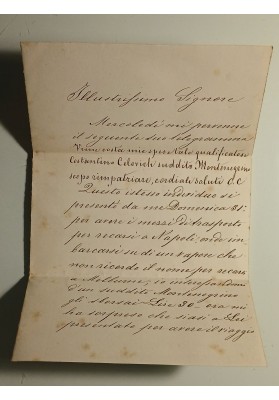 Illustrissimo Signore
Mercoledì mi pervenne
il seguente suo telegramma
Viene costà mie spese tale qualificatosi
Costantino Celovich suddito Montenegrino
scopo rimpatriare, cordiali saluti C. C
Questo istesso individuo si
presentò da me Domenica 31
per avere i mezzi di trasporto
per recarsi a Napoli, onde im-
barcarsi su di un vapore che
non ricordo il nome per recarsi
a
d'un suddito Montenegrino
gli sborsai Lire 30 ora mi
ha sorpreso che siasi a Lei
presentato per avere il viaggio